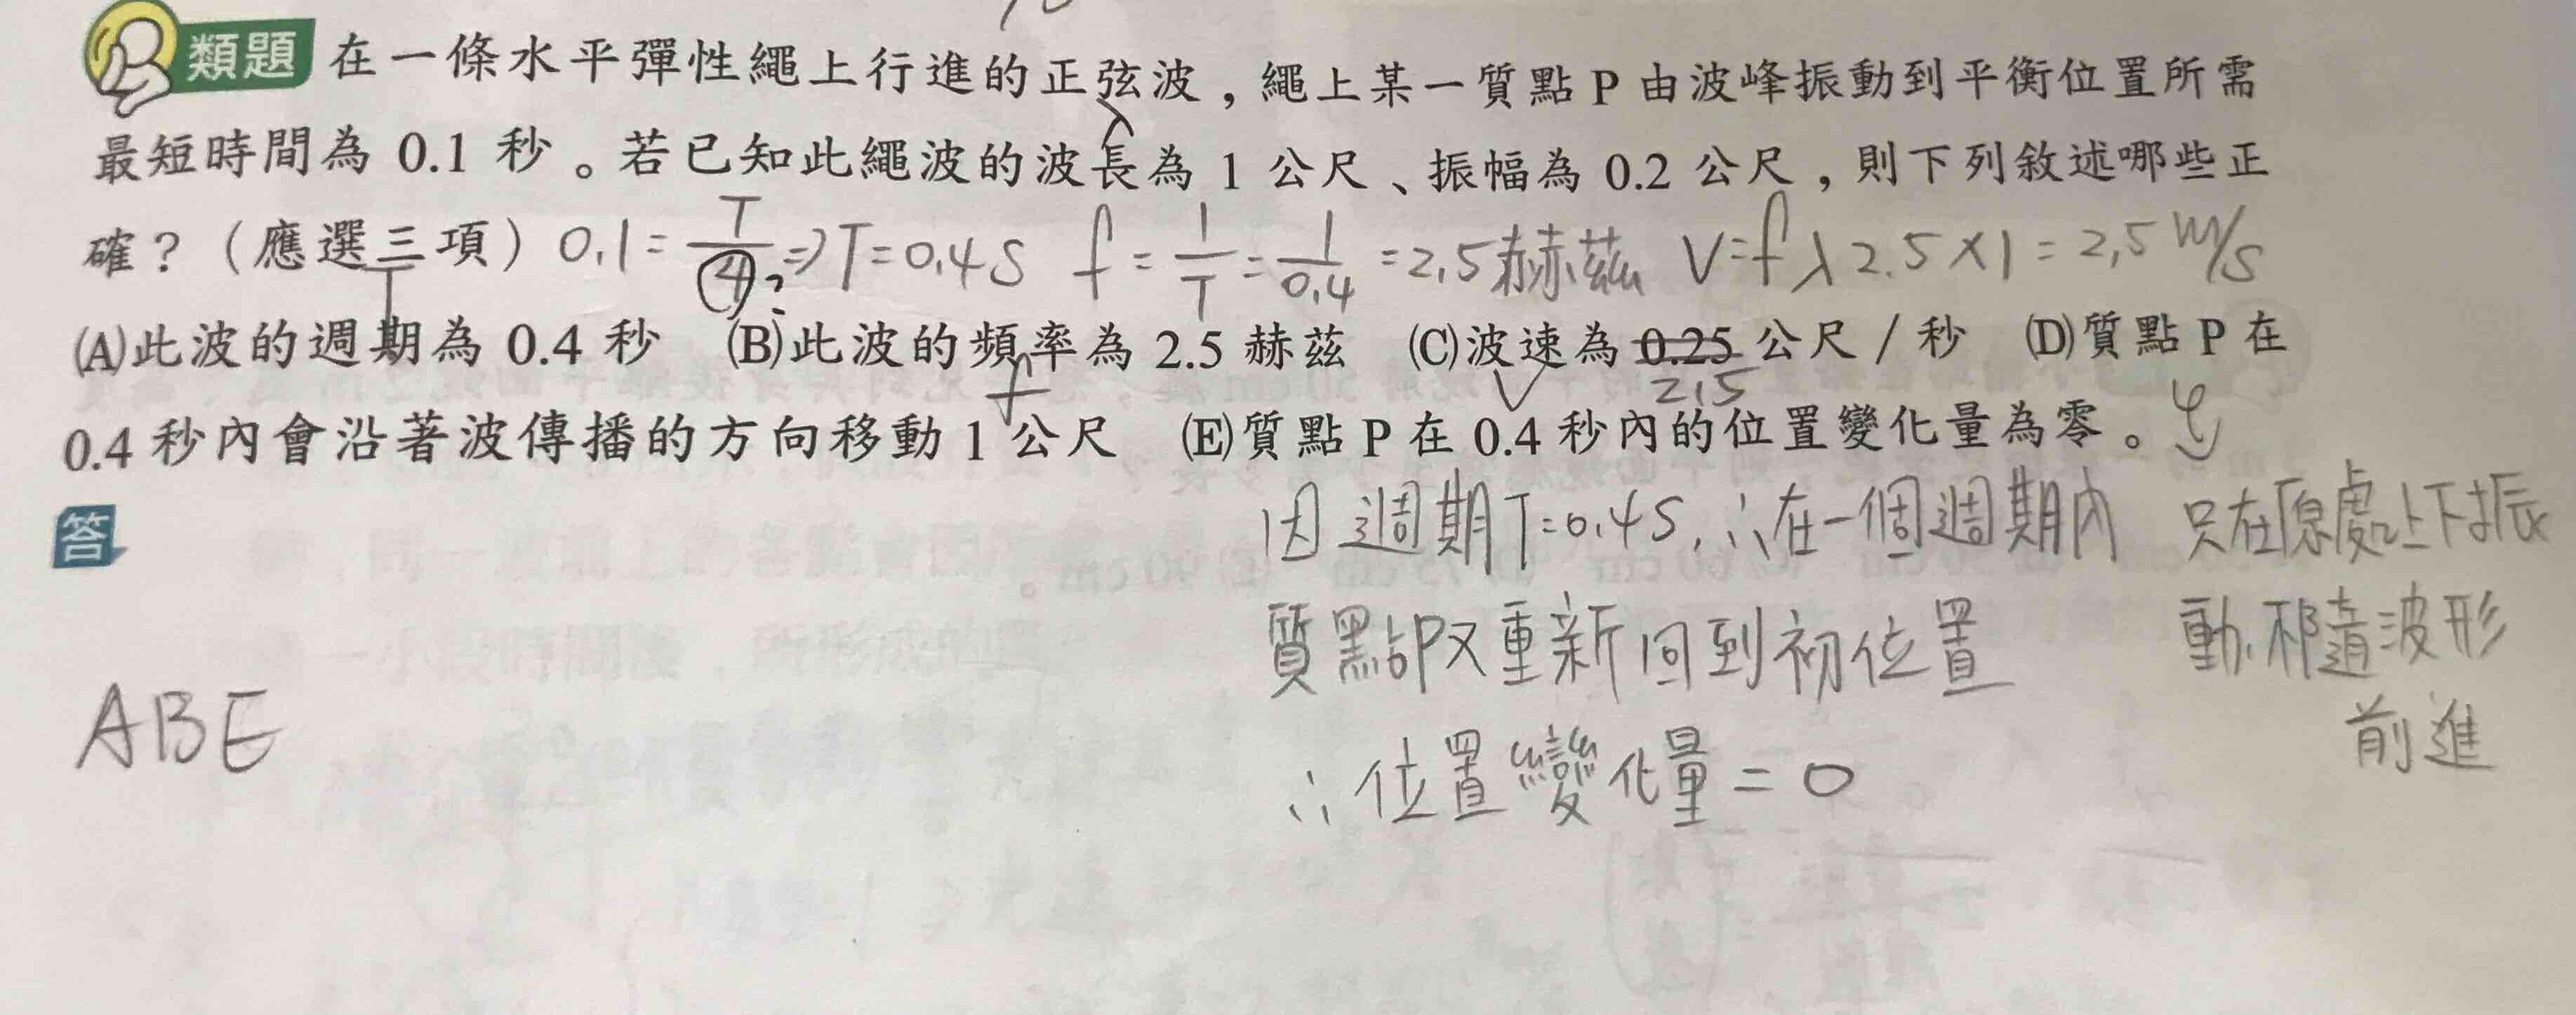 類題 在一條水平彈性繩上行進的正弦波，繩上某一質點 P 由波峰振動到平衡位置所需
λ
最短時間為 0.1 秒。若已知此繩波的波長為 1 公尺、振幅為 0.2 公尺，則下列敘述哪些正
確？（應選三項） 0.1 = T/4 ? ⇒ T = 0.4 S f = 1/T = 1/0.4 = 2.5 赫茲 V = f λ 2.5 × 1 = 2.5 m/s
T
(A)此波的週期為 0.4 秒 (B)此波的頻率為 2.5 赫茲 (C)波速為 0.25 公尺／秒 (D)質點 P 在
f V 2.5
0.4 秒內會沿著波傳播的方向移動 1 公尺 (E)質點 P 在 0.4 秒內的位置變化量為零。
答
因週期 T = 0.4 S, ∴在一個週期內
質點P又重新回到初位置
∴位置變化量 = 0
只在原處上下振
動,不隨波形
前進
ABE